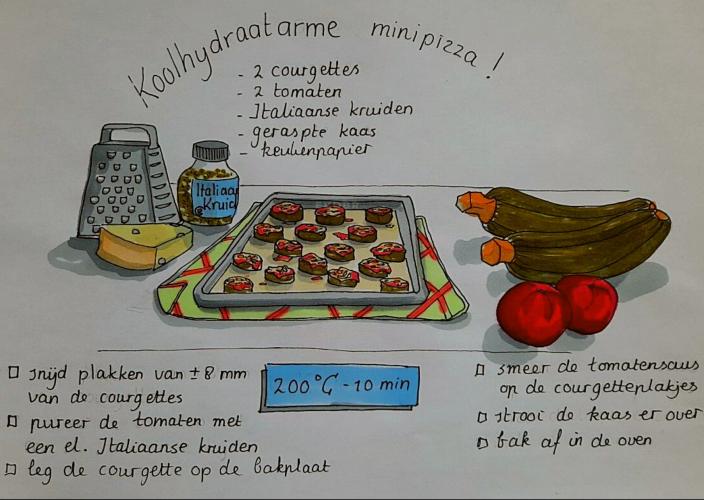 Koolhydraatarme minipizza!
- 2 courgettes
- 2 tomaten
- Italiaanse kruiden
- geraspte kaas
- keukenpapier
Italiaa
Kruid
□ snijd plakken van ± 8 mm
van de courgettes
□ pureer de tomaten met
een el. Italiaanse kruiden
□ leg de courgette op de bakplaat
200°C - 10 min
□ smeer de tomatensaus
op de courgetteplakjes
□ strooi de kaas er over
□ bak af in de oven